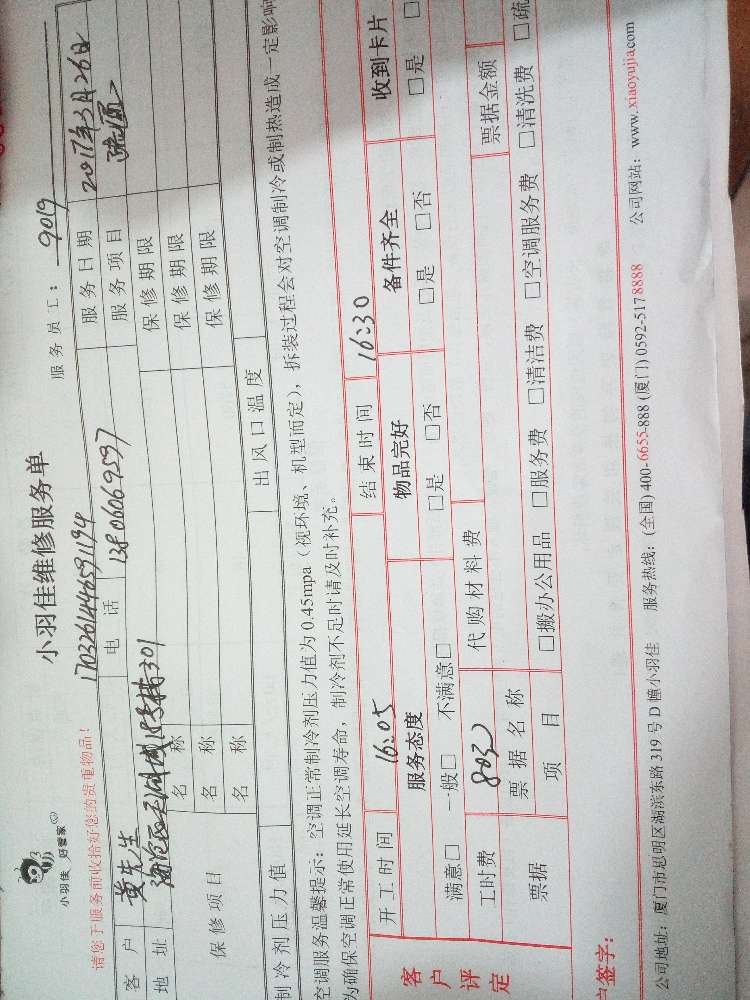 小羽佳 好管家
小羽佳维修服务单
服务员工： 9019
请您于服务前收拾好您的贵重物品！
1703261446591194
服务日期 2017年3月26日
客户 黄先生 电话 13806069597 服务项目
地址 海沧区天湖城18号楼301 保修期限
保修项目 名称 保修期限
名称 保修期限
名称
制冷剂压力值 出风口温度
空调服务温馨提示：空调正常制冷剂压力值为0.45mpa（视环境、机型而定），拆装过程会对空调制冷或制热造成一定影响
为确保空调正常使用延长空调寿命，制冷剂不足时请及时补充。
开工时间 16:05 结束时间 16:30
客户评定 服务态度 物品完好 备件齐全 收到卡片
满意□ 一般□ 不满意□ □是 □否 □是 □否 □是
工时费 代购材料费
票据 票据名称 票据金额
项目 □搬办公用品 □服务费 □清洁费 □空调服务费 □清洗费 □疏
户签字：
公司地址：厦门市思明区湖滨东路319号D幢小羽佳 服务热线：(全国)400-6655-888 (厦门)0592-5178888 公司网站：www.xiaoyujia.com